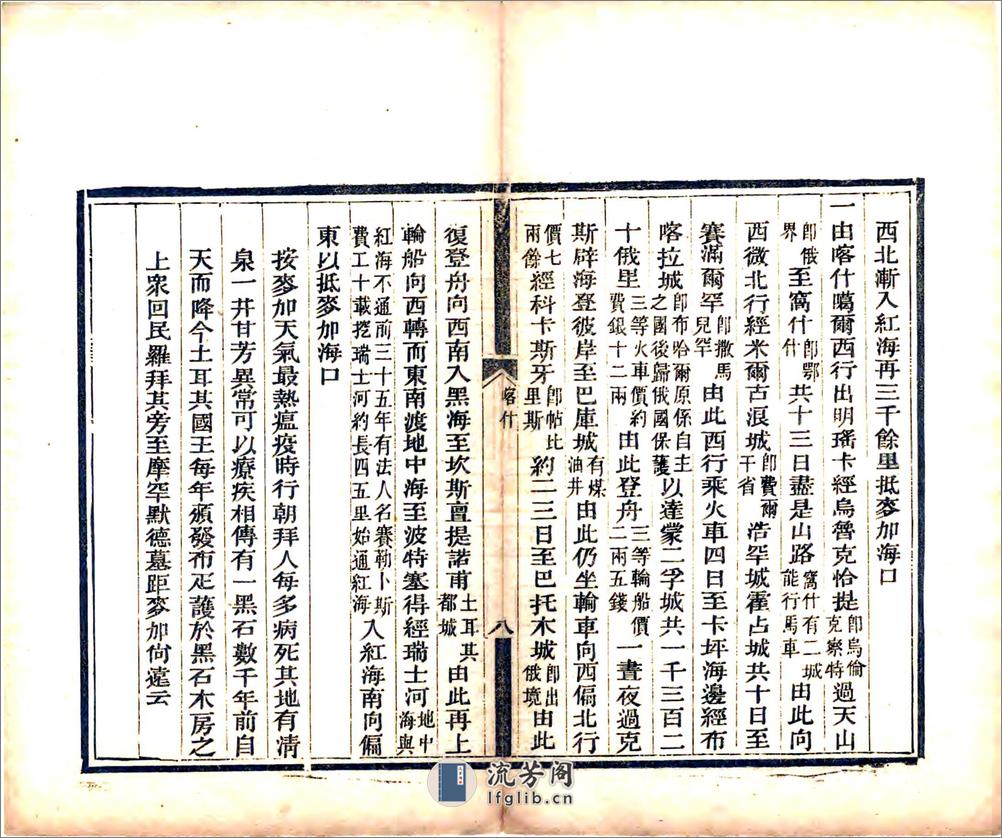 西北漸入紅海再三千餘里抵麥加海口
一由喀什噶爾西行出明瑤卡經烏魯克恰提卽烏倫克察特過天山
卽俄界至窩什卽鄂什共十三日盡是山路窩什有二城能行馬車由此向
西微北行經米爾古浪城卽費爾干省浩罕城霍占城共十日至
賽滿爾罕卽撒馬兒罕由此西行乘火車四日至卡坪海邊經布
喀拉城卽布哈爾原係自主之國後歸俄國保護以達蒙二孚城共一千三百二
十俄里三等火車價約費銀十二兩由此登舟三等輪船價二兩五錢一晝夜過克
斯辟海登彼岸至巴庫城有煤油井由此仍坐輪車向西偏北行
價七兩餘經科卡斯牙卽帖比里斯約二三日至巴托木城卽出俄境由此
喀什
八
復登舟向西南入黑海至坎斯亶提諾甫土耳其都城由此再上
輪船向西轉而東南渡地中海至波特塞得經瑞士河地中海與
紅海不通前三十五年有法人名賽勒卜斯費工十載挖瑞士河約長四五里始通紅海入紅海南向偏
東以抵麥加海口
按麥加天氣最熱瘟疫時行朝拜人每多病死其地有清
泉一井甘芳異常可以療疾相傳有一黑石數千年前自
天而降今土耳其國王每年頒發布疋護於黑石木房之
上衆回民羅拜其旁至摩罕默德墓距麥加尙遠云
流芳阁
lfglib.cn